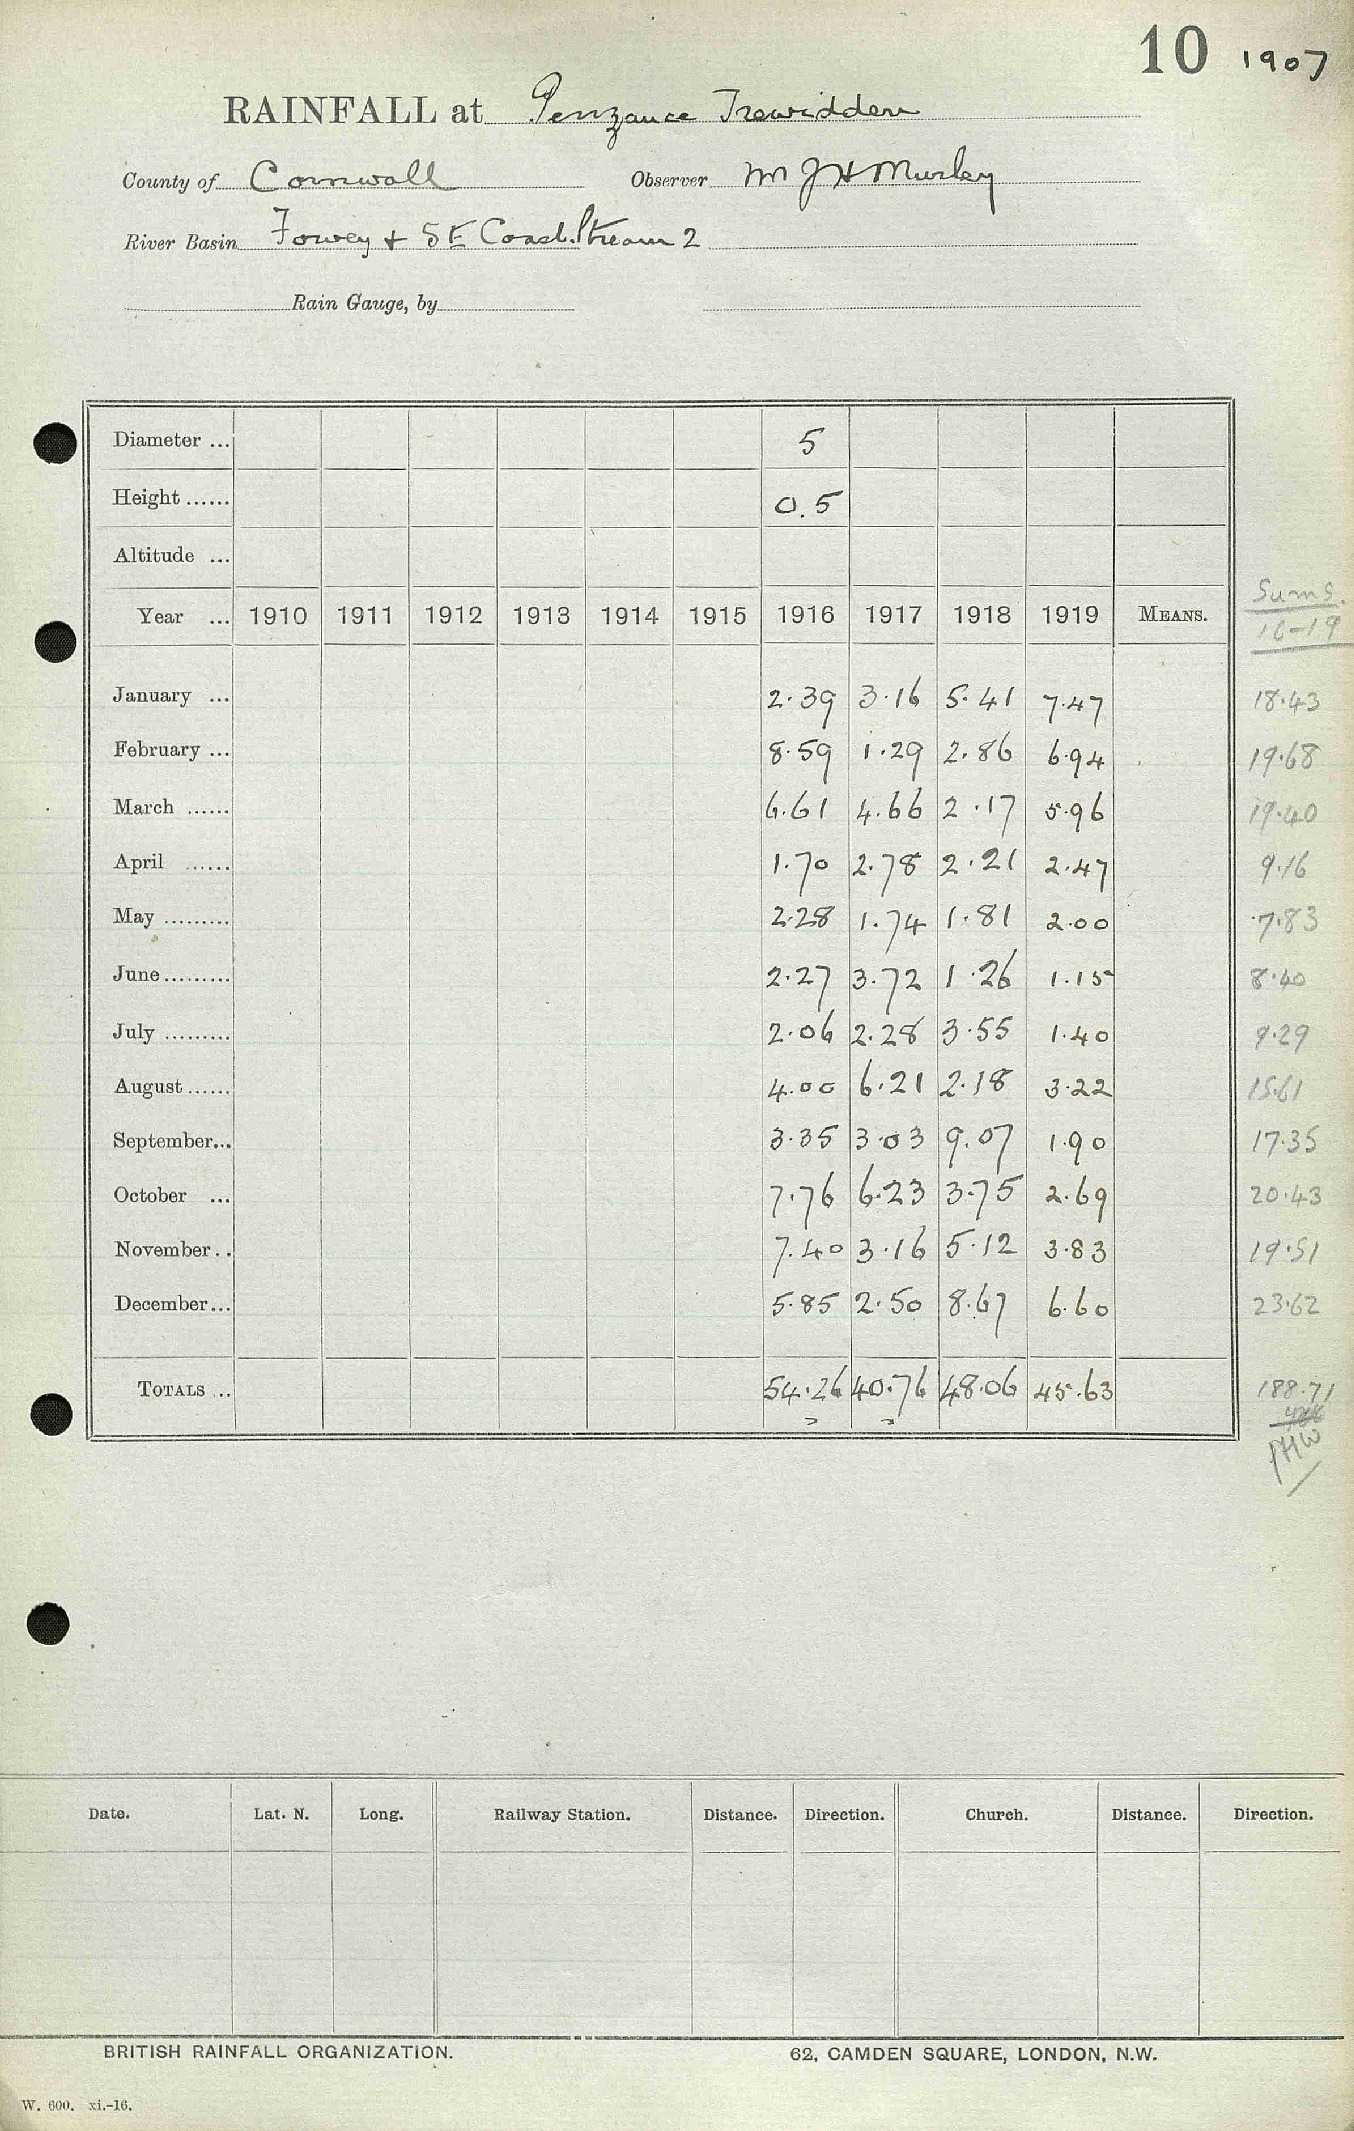 10 1907
RAINFALL at Penzance Trewidden
County of Cornwall Observer Mr J H Murley
River Basin Fowey + SE Coast Stream 2
Rain Gauge, by
Diameter ... 5
Height ...... 0.5
Altitude ...
Sums.
Year ... 1910 1911 1912 1913 1914 1915 1916 1917 1918 1919 MEANS. 16-19
January ... 2.39 3.16 5.41 7.47 18.43
February ... 8.59 1.29 2.86 6.94 19.68
March ...... 6.61 4.66 2.17 5.96 19.40
April ...... 1.70 2.78 2.21 2.47 9.16
May ......... 2.28 1.74 1.81 2.00 7.83
June ......... 2.27 3.72 1.26 1.15 8.40
July ......... 2.06 2.28 3.55 1.40 9.29
August ...... 4.00 6.21 2.18 3.22 15.61
September... 3.35 3.03 9.07 1.90 17.35
October ... 7.76 6.23 3.75 2.69 20.43
November.. 7.40 3.16 5.12 3.83 19.51
December... 5.85 2.50 8.67 6.60 23.62
TOTALS ... 54.26 40.76 48.06 45.63 188.71
Date. Lat. N. Long. Railway Station. Distance. Direction. Church. Distance. Direction.
BRITISH RAINFALL ORGANIZATION. 62, CAMDEN SQUARE, LONDON, N.W.
W. 600. xi.-16.